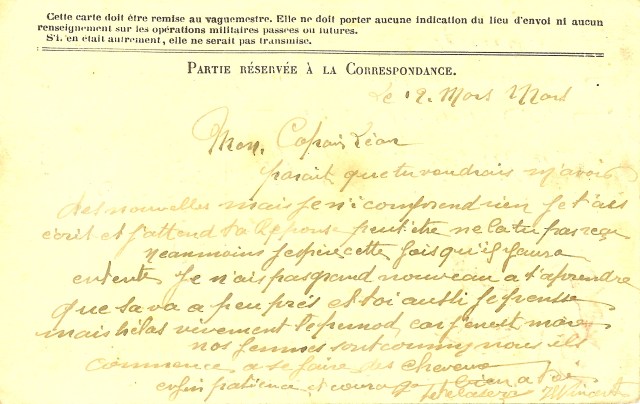 Cette carte doit être remise au vaguemestre. Elle ne doit porter aucune indication du lieu d'envoi ni aucun
renseignement sur les opérations militaires passées ou futures.
S'il en était autrement, elle ne serait pas transmise.
PARTIE RÉSERVÉE À LA CORRESPONDANCE.
Le 12. Mars
Mon. Copain Léon
parait que tu voudrais m'avoir
des nouvelles mais je n'i comprend rien je t'ais
ecrit et j'attend ta Reponse peut etre ne la tu pas reçu
neanmoins j'espere cette fois qu'il y aura
entente je n'ais pas grand nouveau a t'aprendre
que sa va a peu prés et toi aussi je pense
mais hélas vivement le pernod, car j'en est marre
nos femmes sont comme nous ils
commence a se faire des cheveux
enfin patience et courage bien a toi